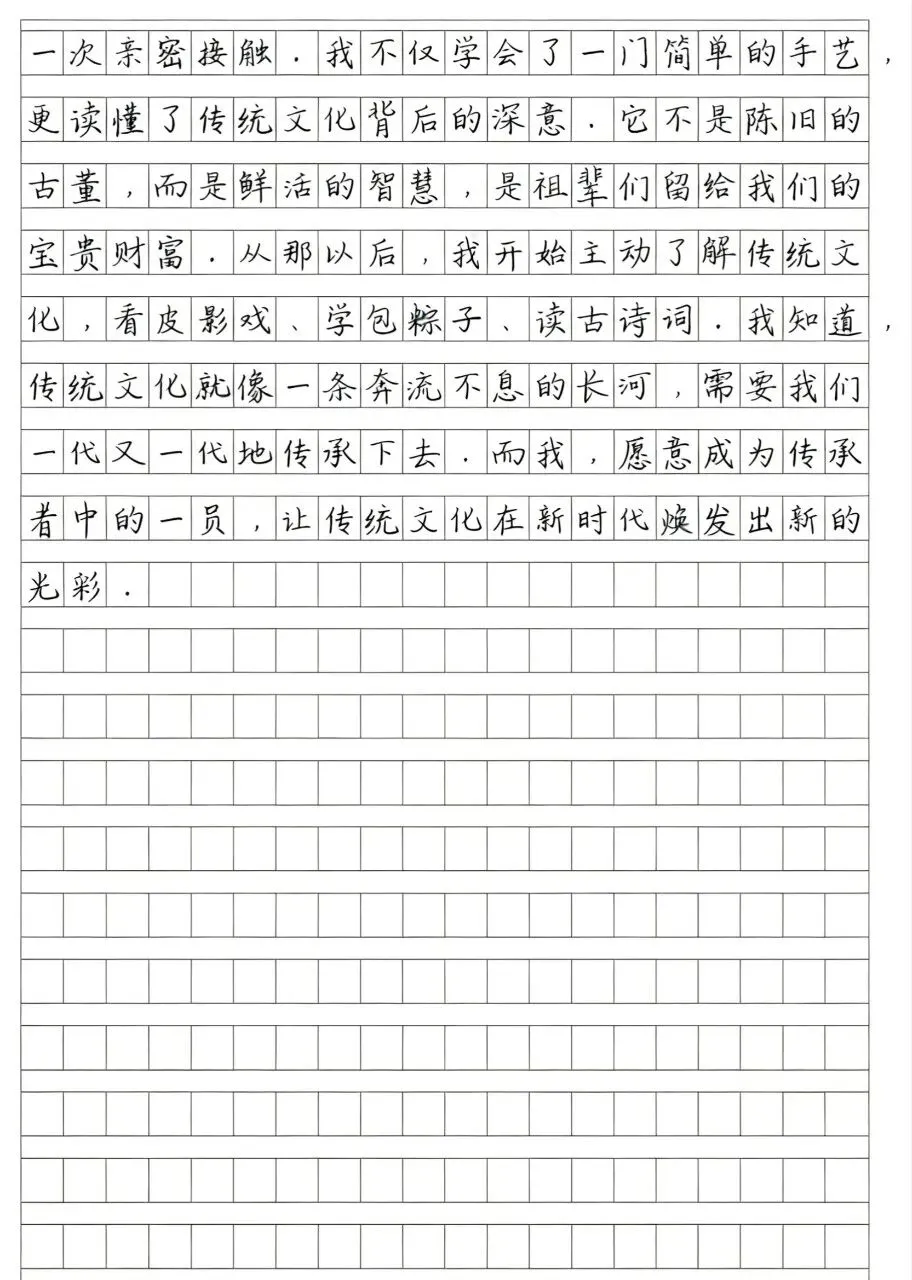 一次亲密接触.我不仅学会了一门简单的手艺,
更读懂了传统文化背后的深意.它不是陈旧的
古董,而是鲜活的智慧,是祖辈们留给我们的
宝贵财富.从那以后,我开始主动了解传统文
化,看皮影戏、学包粽子、读古诗词.我知道,
传统文化就像一条奔流不息的长河,需要我们
一代又一代地传承下去.而我,愿意成为传承
者中的一员,让传统文化在新时代焕发出新的
光彩.